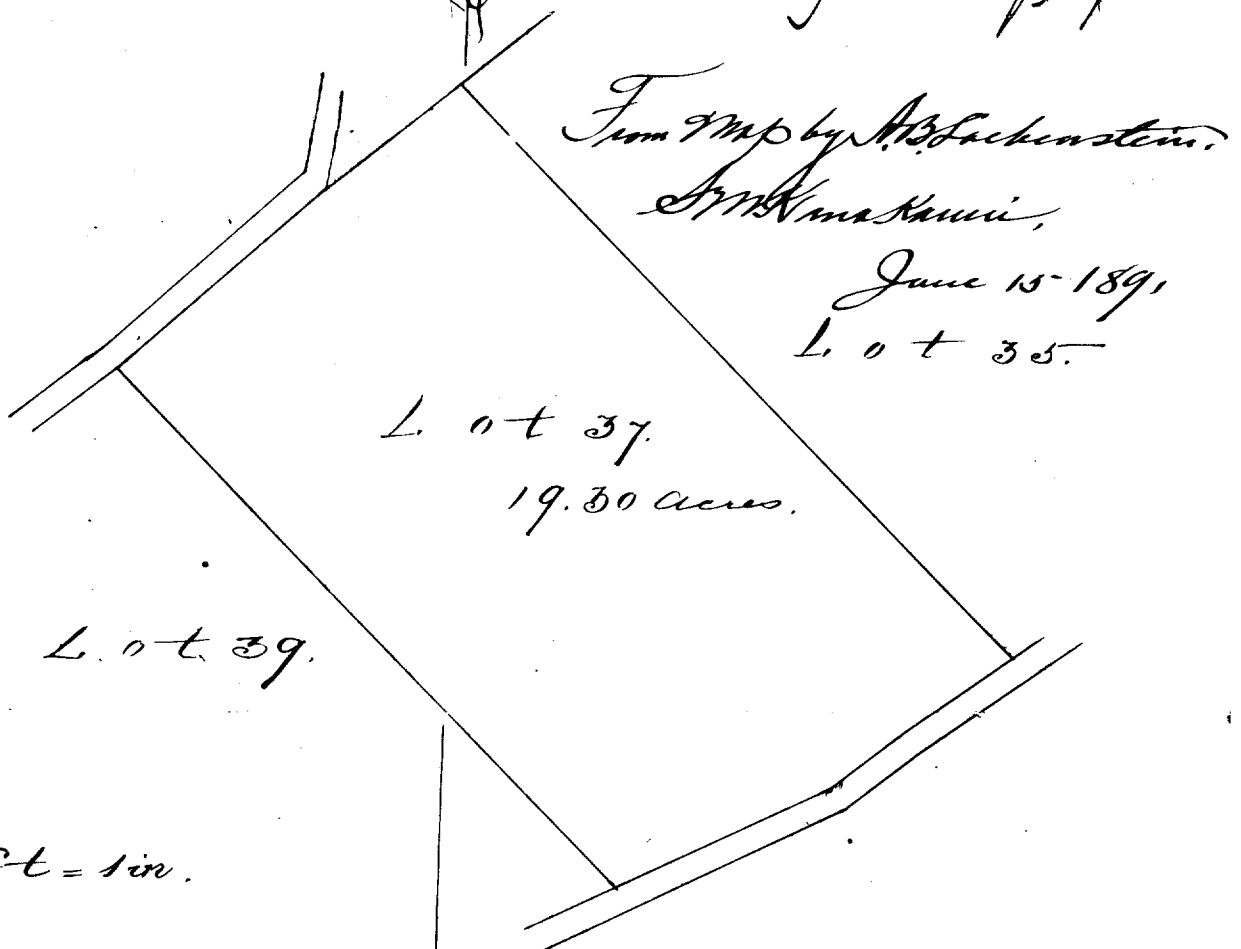 From Map by A.B. Loebenstein.
June 15 - 1891
Lot 35.
Lot 37.
19.30 acres.
Lot 39.
ft = 1 in.